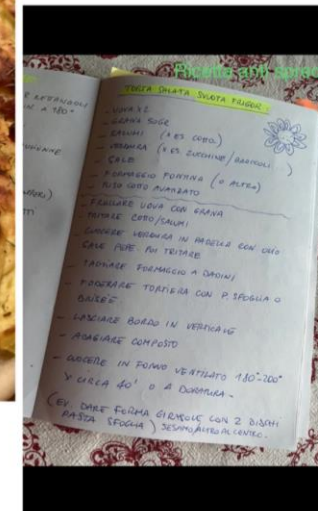 Ricetta anti sprec
TORTA SALATA SVUOTA FRIGOR
- UOVA x2
- GRANA 50GR
- SALUMI (x ES. COTTO.)
- VERDURA (x ES ZUCCHINE / BROCCOLI...)
- SALE
- FORMAGGIO FONTINA (O ALTRO)
- RISO COTTO AVANZATO
- FRULLARE UOVA CON GRANA
TRITARE COTTO/SALUMI
- CUOCERE VERDURA IN PADELLA CON OLIO
SALE PEPE. POI TRITARE
- TAGLIARE FORMAGGIO A DADINI
- FODERARE TORTIERA CON P. SFOGLIA O
BRISÉE
- LASCIARE BORDO IN VERTICALE
- ADAGIARE COMPOSTO
- CUOCERE IN FORNO VENTILATO 180°-200°
x CIRCA 40' O A DORATURA.
(EV. DARE FORMA GIRASOLE CON 2 DISCHI
PASTA SFOGLIA) SESAMO/ALTRO AL CENTRO.